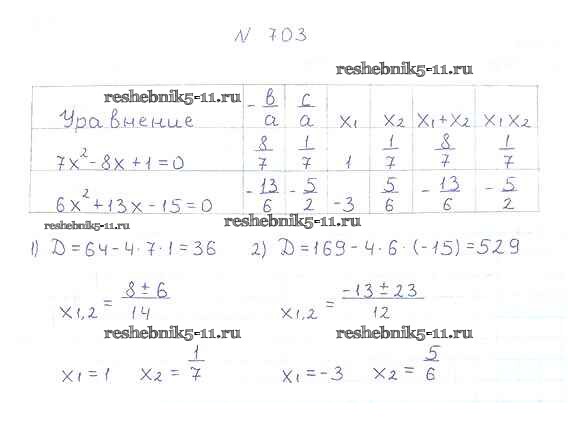 N 703
reshebnik5-11.ru
reshebnik5-11.ru
Уравнение | -b/a | c/a | x₁ | x₂ | x₁+x₂ | x₁x₂
7x²-8x+1=0 | 8/7 | 1/7 | 1 | 1/7 | 8/7 | 1/7
6x²+13x-15=0 | -13/6 | -5/2 | -3 | 5/6 | -13/6 | -5/2
reshebnik5-11.ru
reshebnik5-11.ru
1) D=64-4·7·1=36 2) D=169-4·6·(-15)=529
x₁,₂ = (8±6)/14 x₁,₂ = (-13±23)/12
reshebnik5-11.ru
reshebnik5-11.ru
x₁=1 x₂=1/7 x₁=-3 x₂=5/6